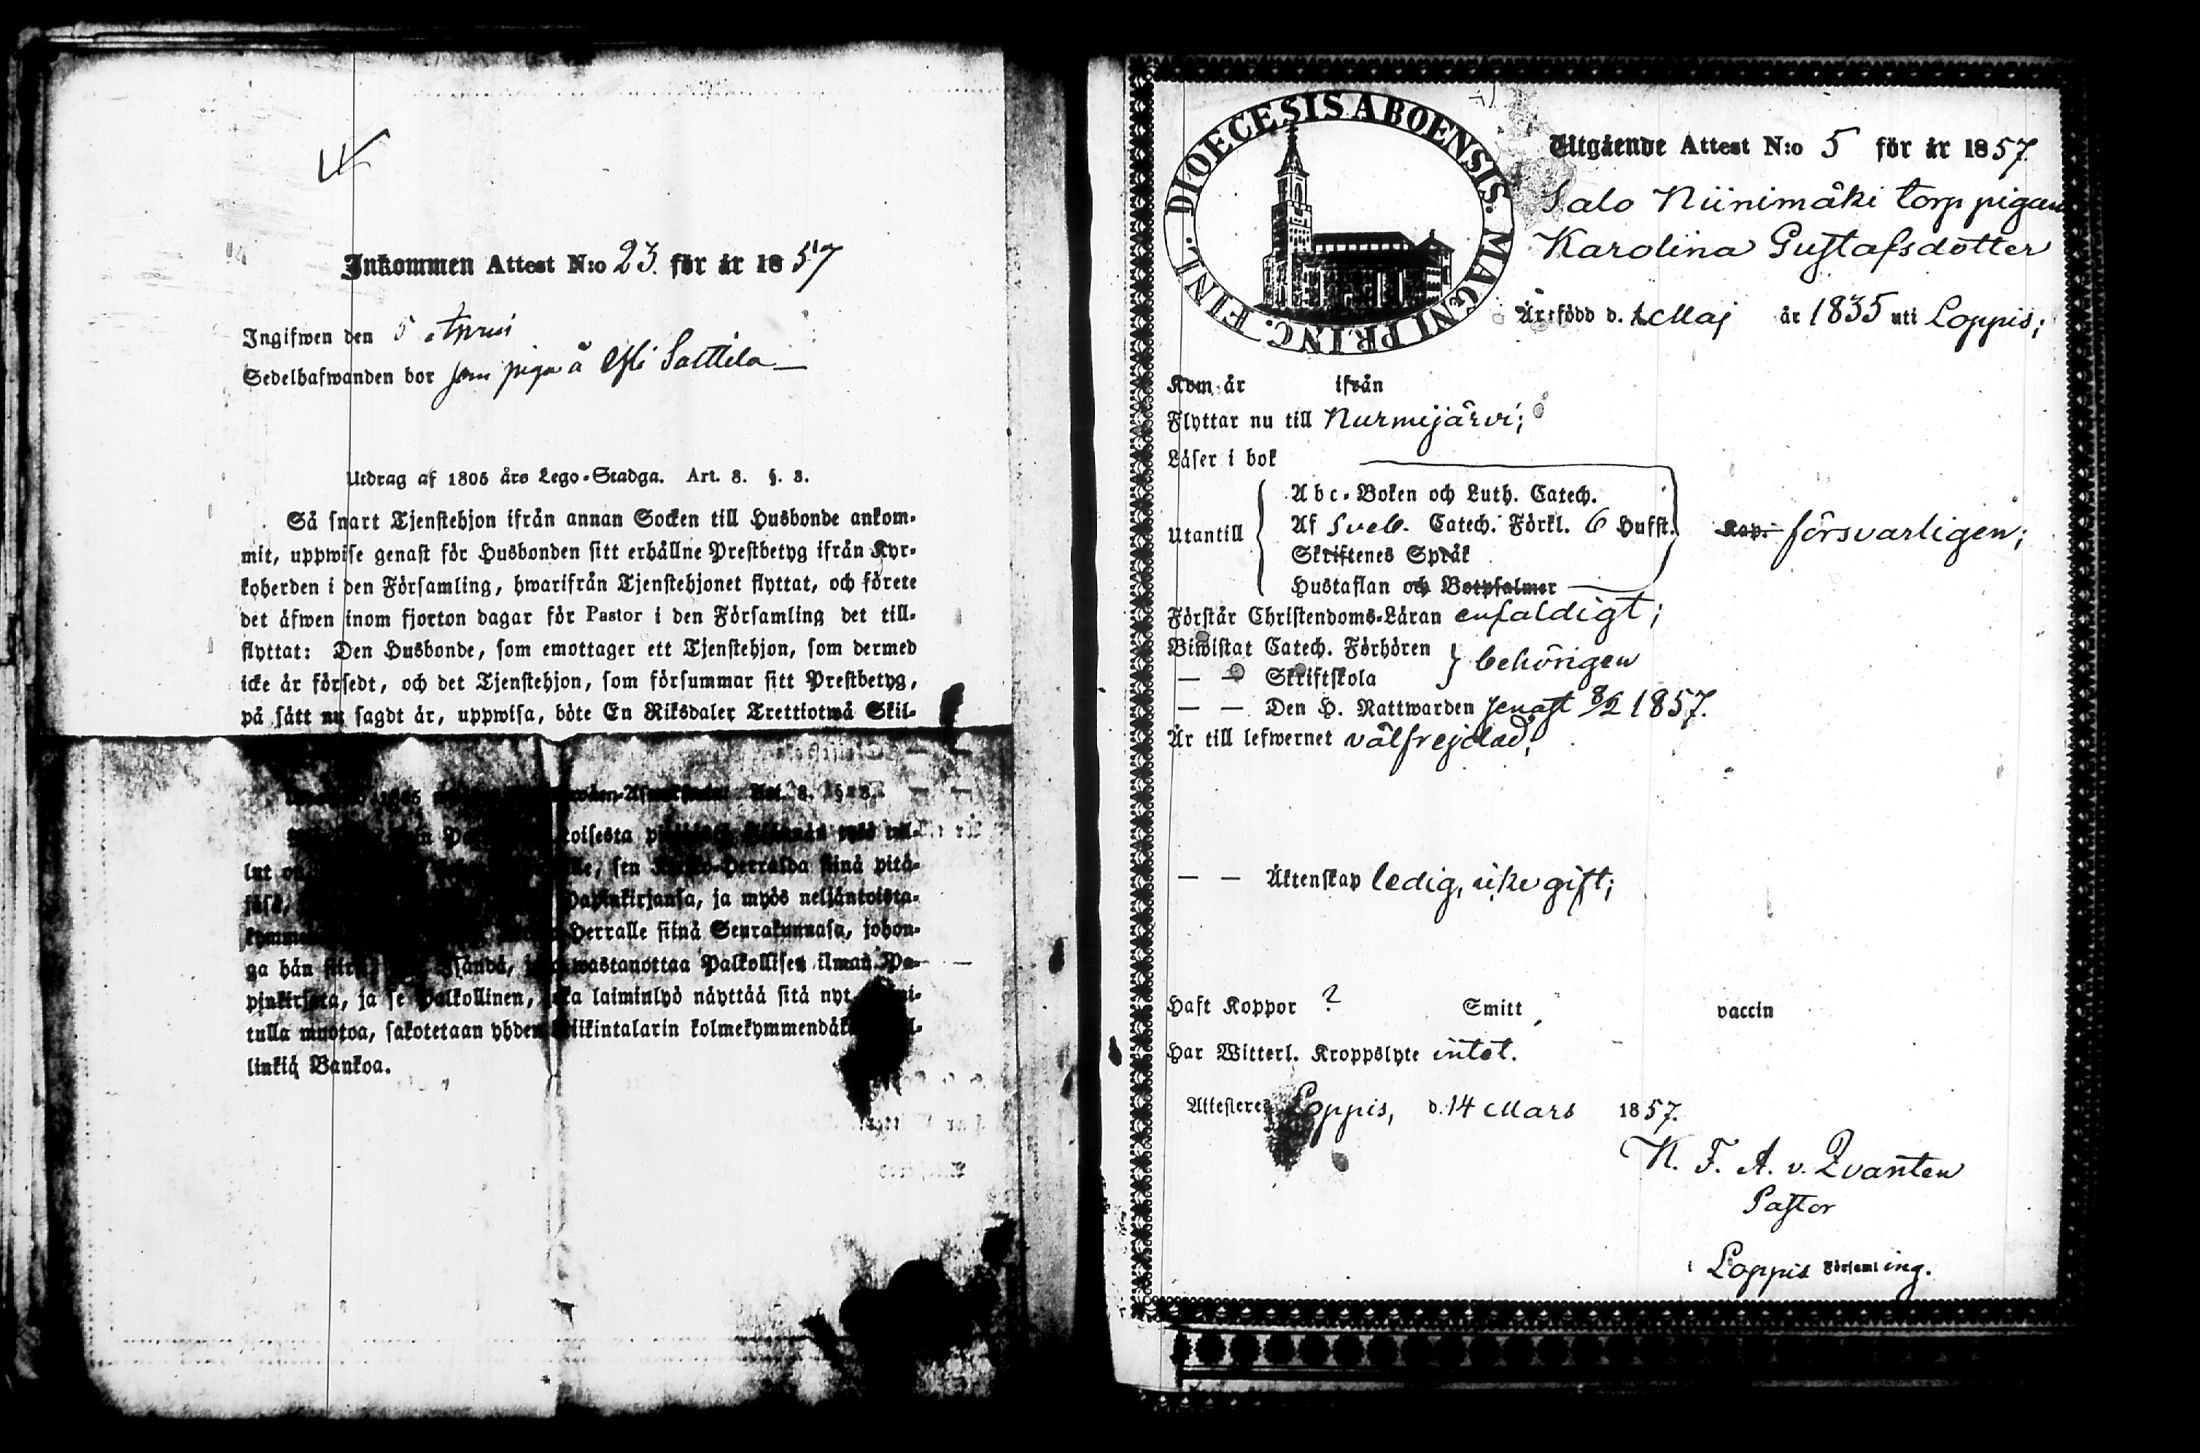 Inkommen Attest N:o 23. för år 1857
Ingifwen den 5 April
Sedelhafwanden bor som piga å Yli Sattila
Utdrag af 1805 års Lego-Stadga. Art. 8. §. 8.
Så snart Tjenstehjon ifrån annan Socken till Husbonde ankom-
mit, uppwise genast för Husbonden sitt erhållne Prestbetyg ifrån Kyr-
koherden i den Församling, hwarifrån Tjenstehjonet flyttat, och förete
det äfwen inom fjorton dagar för Pastor i den Församling det till-
flyttat: Den Husbonde, som emottager ett Tjenstehjon, som dermed
icke är försedt, och det Tjenstehjon, som försummar sitt Prestbetyg,
på sätt nu sagdt är, uppwisa, böte En Riksdaler Trettiotwå Skil-
1805 Art. 8. § 8.
toisesta
lut sen siinä pitä-
Papinkirjansa, ja myös neljäntoista-
Herralle siinä Seurakunnasa, johon-
ga hän wastanottaa Palkollisen ilman Pa-
pinkirjata, ja se Palkollinen, laiminlyö näyttää sitä nyt
tulla muotoa, sakotetaan yhden kolmekymmendä
linkiä Bankoa.
DIOECESIS ABOENSIS. MAGNI PRINC. FINL.
Utgående Attest N:o 5 för år 1857
Salo Niinimäki torp pigan
Karolina Gustafsdotter
Är född d. 1 Maj år 1835 uti Loppis;
Kom år ifrån
Flyttar nu till Nurmijärvi;
Läser i bok
Abc-Boken och Luth. Catech.
Utantill Af Sveb. Catech. Förkl. 6 Hufst. Kap. försvarligen;
Skriftenes Språk
Hustaflan och Botpsalmer
Förstår Christendoms-Läran enfaldigt;
Biwistat Catech. Förhören } behörigen
— — Skriftskola
— — Den H. Nattwarden senast 8/2 1857.
Är till lefwernet välfrejdad;
— — Äktenskap ledig, icke gift;
Haft Koppor ? Smitt vaccin
Har Witterl. Kroppslyte intet.
Attesteres Loppis, d. 14 Mars 1857.
K. F. A. v. Qvanten
Pastor
i Loppis Församling.